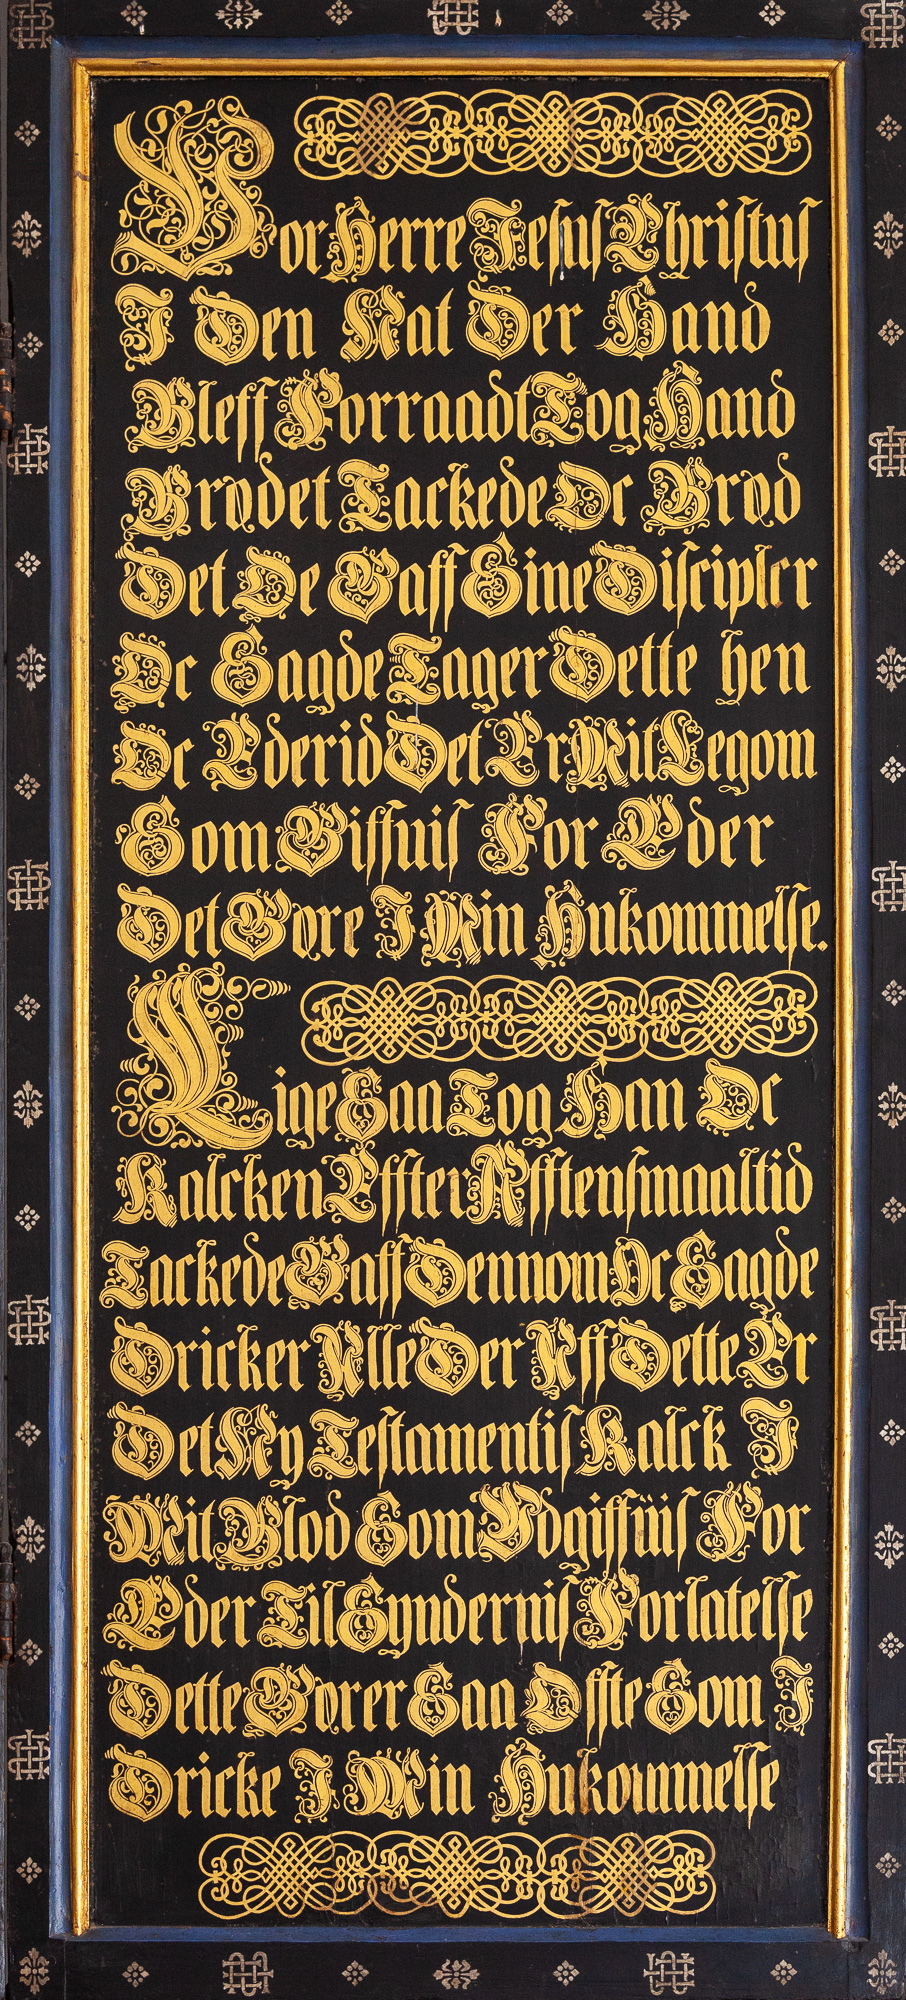 Vor Herre Jesus Christus
I Den Nat Der Hand
Bleff Forraadt Tog Hand
Brødet Tackede Oc Brød
Det De Gaff Sine Discipler
Oc Sagde Tager Dette hen
Oc Æderid Det Er Mit Legom
Som Giffuis For Eder
Det Gøre I Min Hukommelse.
Lige Saa Tog Han Oc
Kalcken Effter Afftensmaaltid
Tackede Gaff Dennom Oc Sagde
Dricker Alle Der Aff Dette Er
Det Ny Testamentis Kalck I
Mit Blod Som Udgiffüis For
Eder Til Syndernis Forlatelse
Dette Gører Saa Offte Som I
Dricke I Min Hukommelse